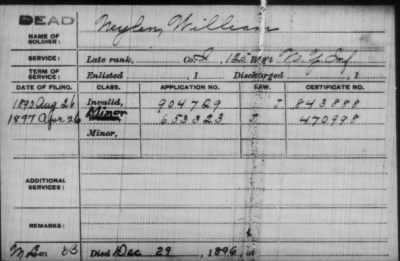 DEAD
NAME OF SOLDIER: Neylon, William
SERVICE: Late rank, Co. I, 125 Reg't N.Y. Inf
TERM OF SERVICE: Enlisted , 1 Discharged , 1
DATE OF FILING. CLASS. APPLICATION NO. LAW. CERTIFICATE NO.
Aug 26 Invalid, 904729 843888
1897 Apr 26 Minor 653323 470998
Minor,
ADDITIONAL SERVICES:
REMARKS:
Died Dec 29, 1896, at